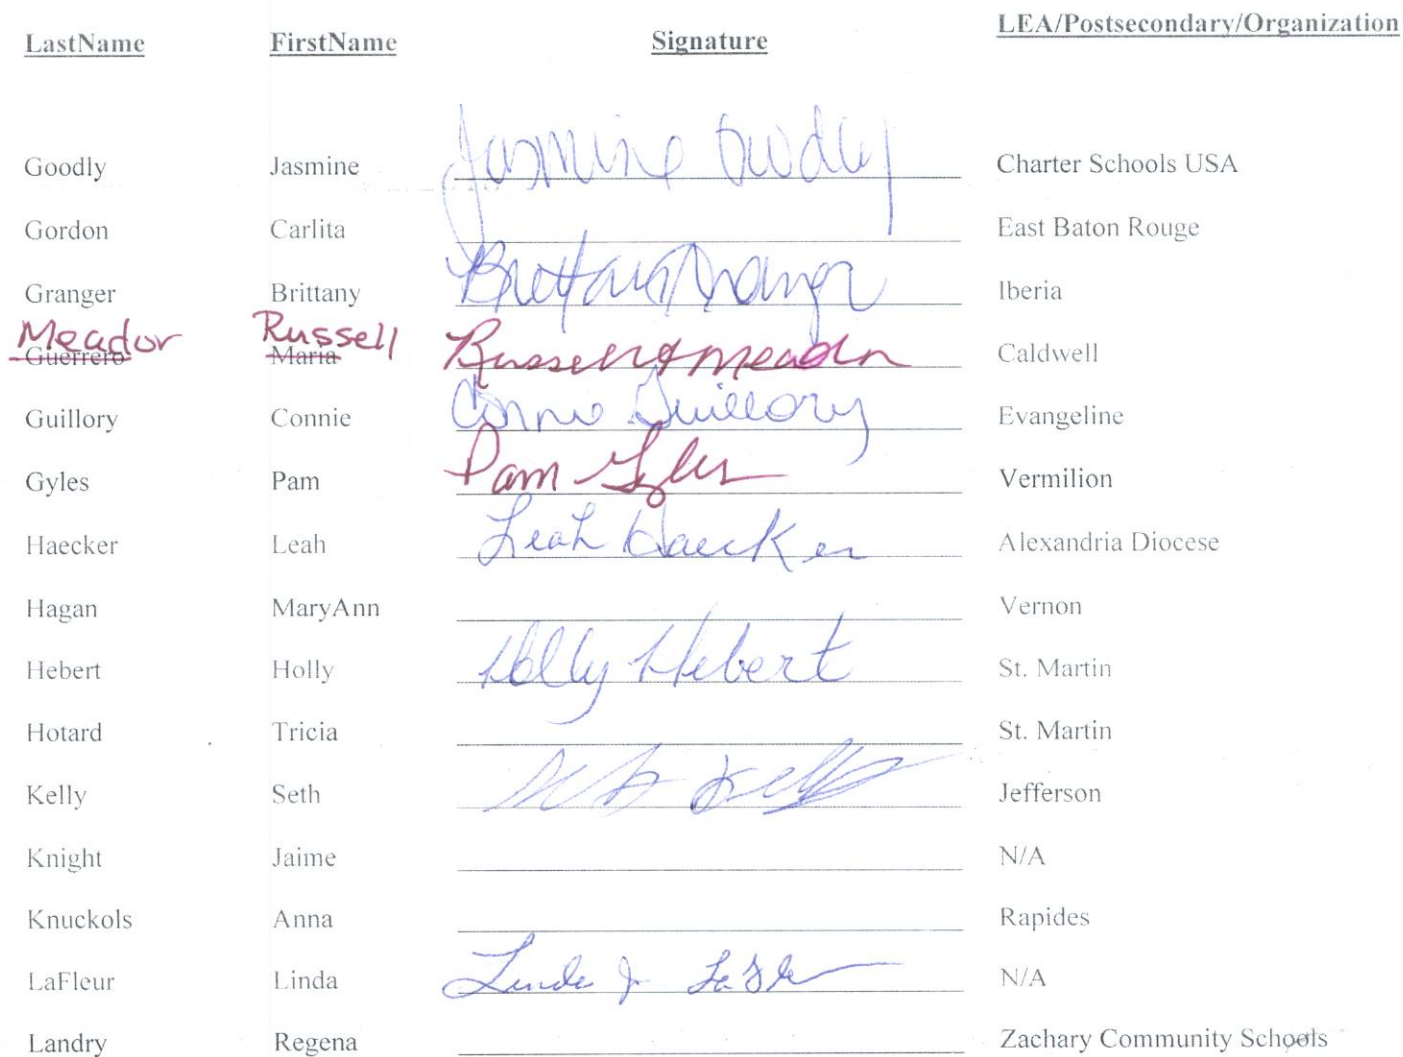 LastName FirstName Signature LEA/Postsecondary/Organization
Goodly Jasmine Jasmine Goodly Charter Schools USA
Gordon Carlita East Baton Rouge
Granger Brittany Brittany Granger Iberia
Meador Russell
Guerrero Maria Russell Meador Caldwell
Guillory Connie Connie Guillory Evangeline
Gyles Pam Pam Gyles Vermilion
Haecker Leah Leah Haecker Alexandria Diocese
Hagan MaryAnn Vernon
Hebert Holly Holly Hebert St. Martin
Hotard Tricia St. Martin
Kelly Seth Seth Kelly Jefferson
Knight Jaime N/A
Knuckols Anna Rapides
LaFleur Linda Linda J LaFleur N/A
Landry Regena Zachary Community Schools